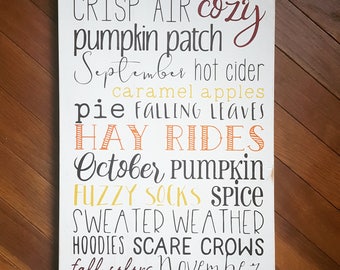 CRISP AIR cozy
pumpkin patch
September hot cider
caramel apples
pie FALLING LEAVES
HAY RIDES
October PUMPKIN
FUZZY SOCKS SPICE
SWEATER WEATHER
HOODIES SCARE CROWS
fall colors November